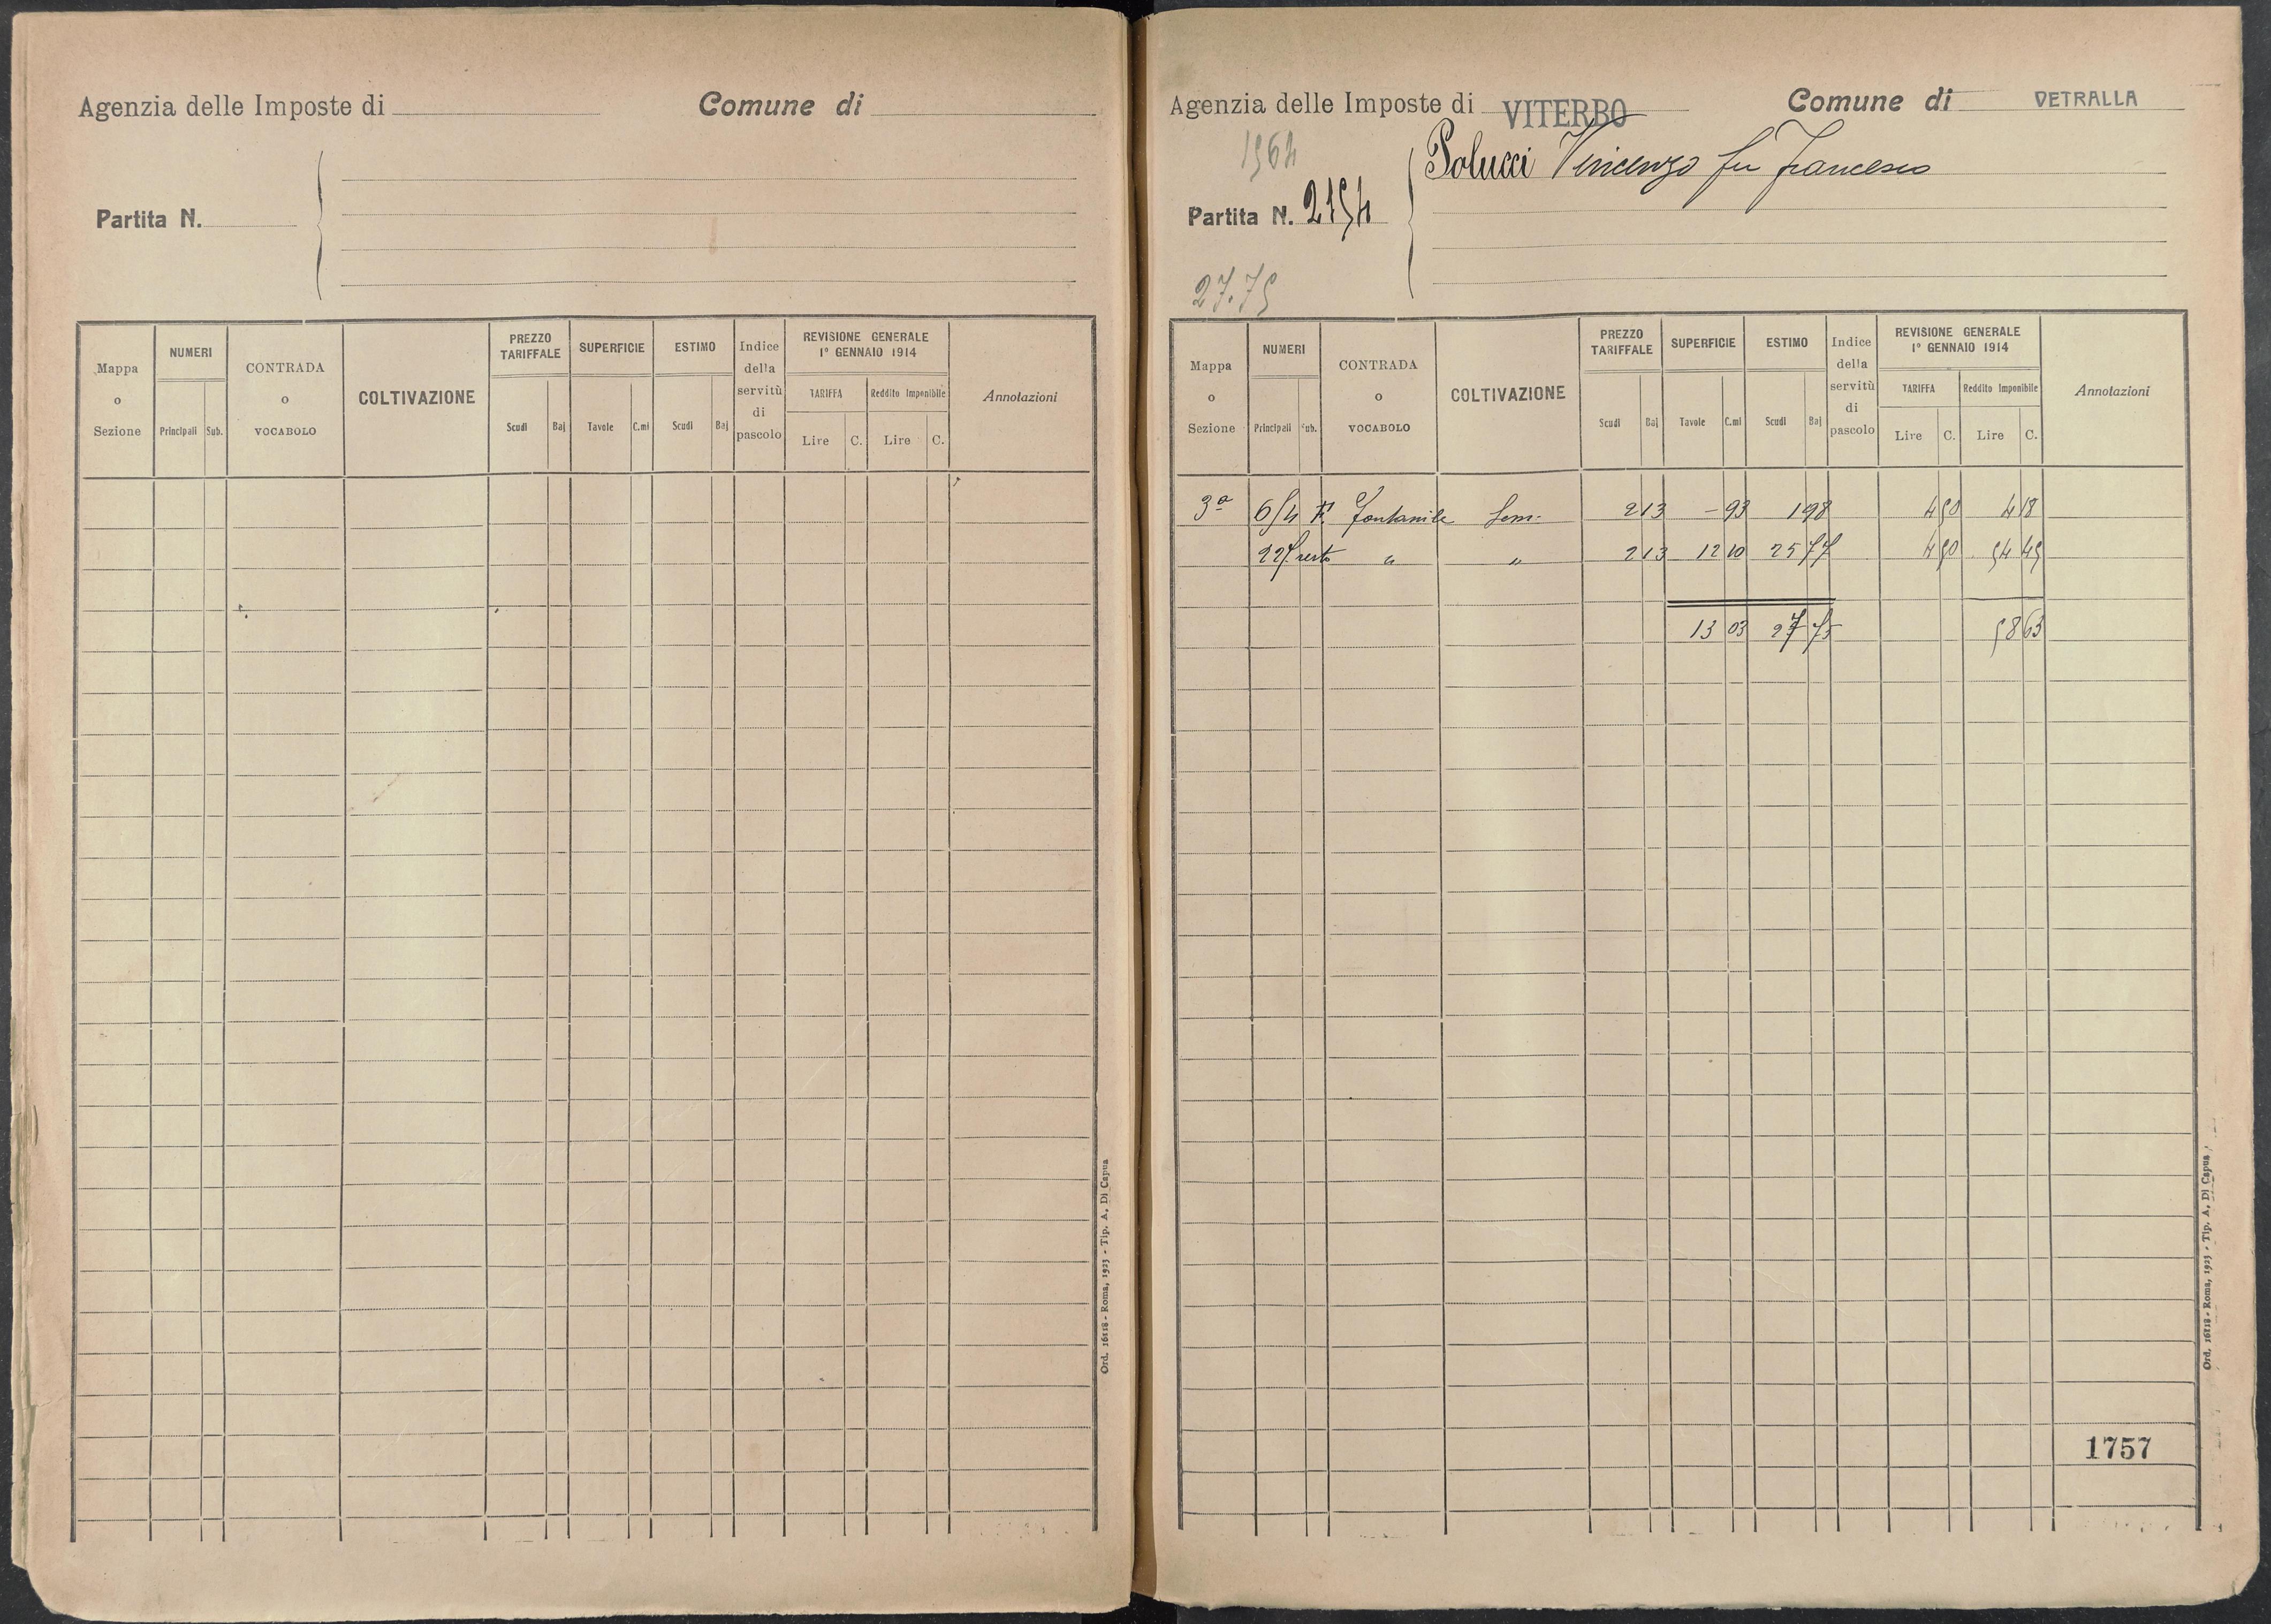 Agenzia delle Imposte di Comune di
Partita N.
Mappa o Sezione NUMERI Principali Sub. CONTRADA o VOCABOLO COLTIVAZIONE PREZZO TARIFFALE Scudi Baj SUPERFICIE Tavole C.mi ESTIMO Scudi Baj Indice della servitù di pascolo REVISIONE GENERALE 1° GENNAIO 1914 TARIFFA Lire C. Reddito Imponibile Lire C. Annotazioni
Ord. 16118 - Roma, 1923 - Tip. A. Di Capua
Agenzia delle Imposte di VITERBO Comune di VETRALLA
1564
Polucci Vincenzo fu Francesco
Partita N. 2154
27.75
Mappa o Sezione NUMERI Principali Sub. CONTRADA o VOCABOLO COLTIVAZIONE PREZZO TARIFFALE Scudi Baj SUPERFICIE Tavole C.mi ESTIMO Scudi Baj Indice della servitù di pascolo REVISIONE GENERALE 1° GENNAIO 1914 TARIFFA Lire C. Reddito Imponibile Lire C. Annotazioni
3ª Fontanile Sem. 2 13 - 93 1 98 4 50 4 18
227 resto " " 2 13 12 10 25 77 4 50 54 45
13 03 27 75 58 63
1757
Ord. 16118 - Roma, 1923 - Tip. A. Di Capua